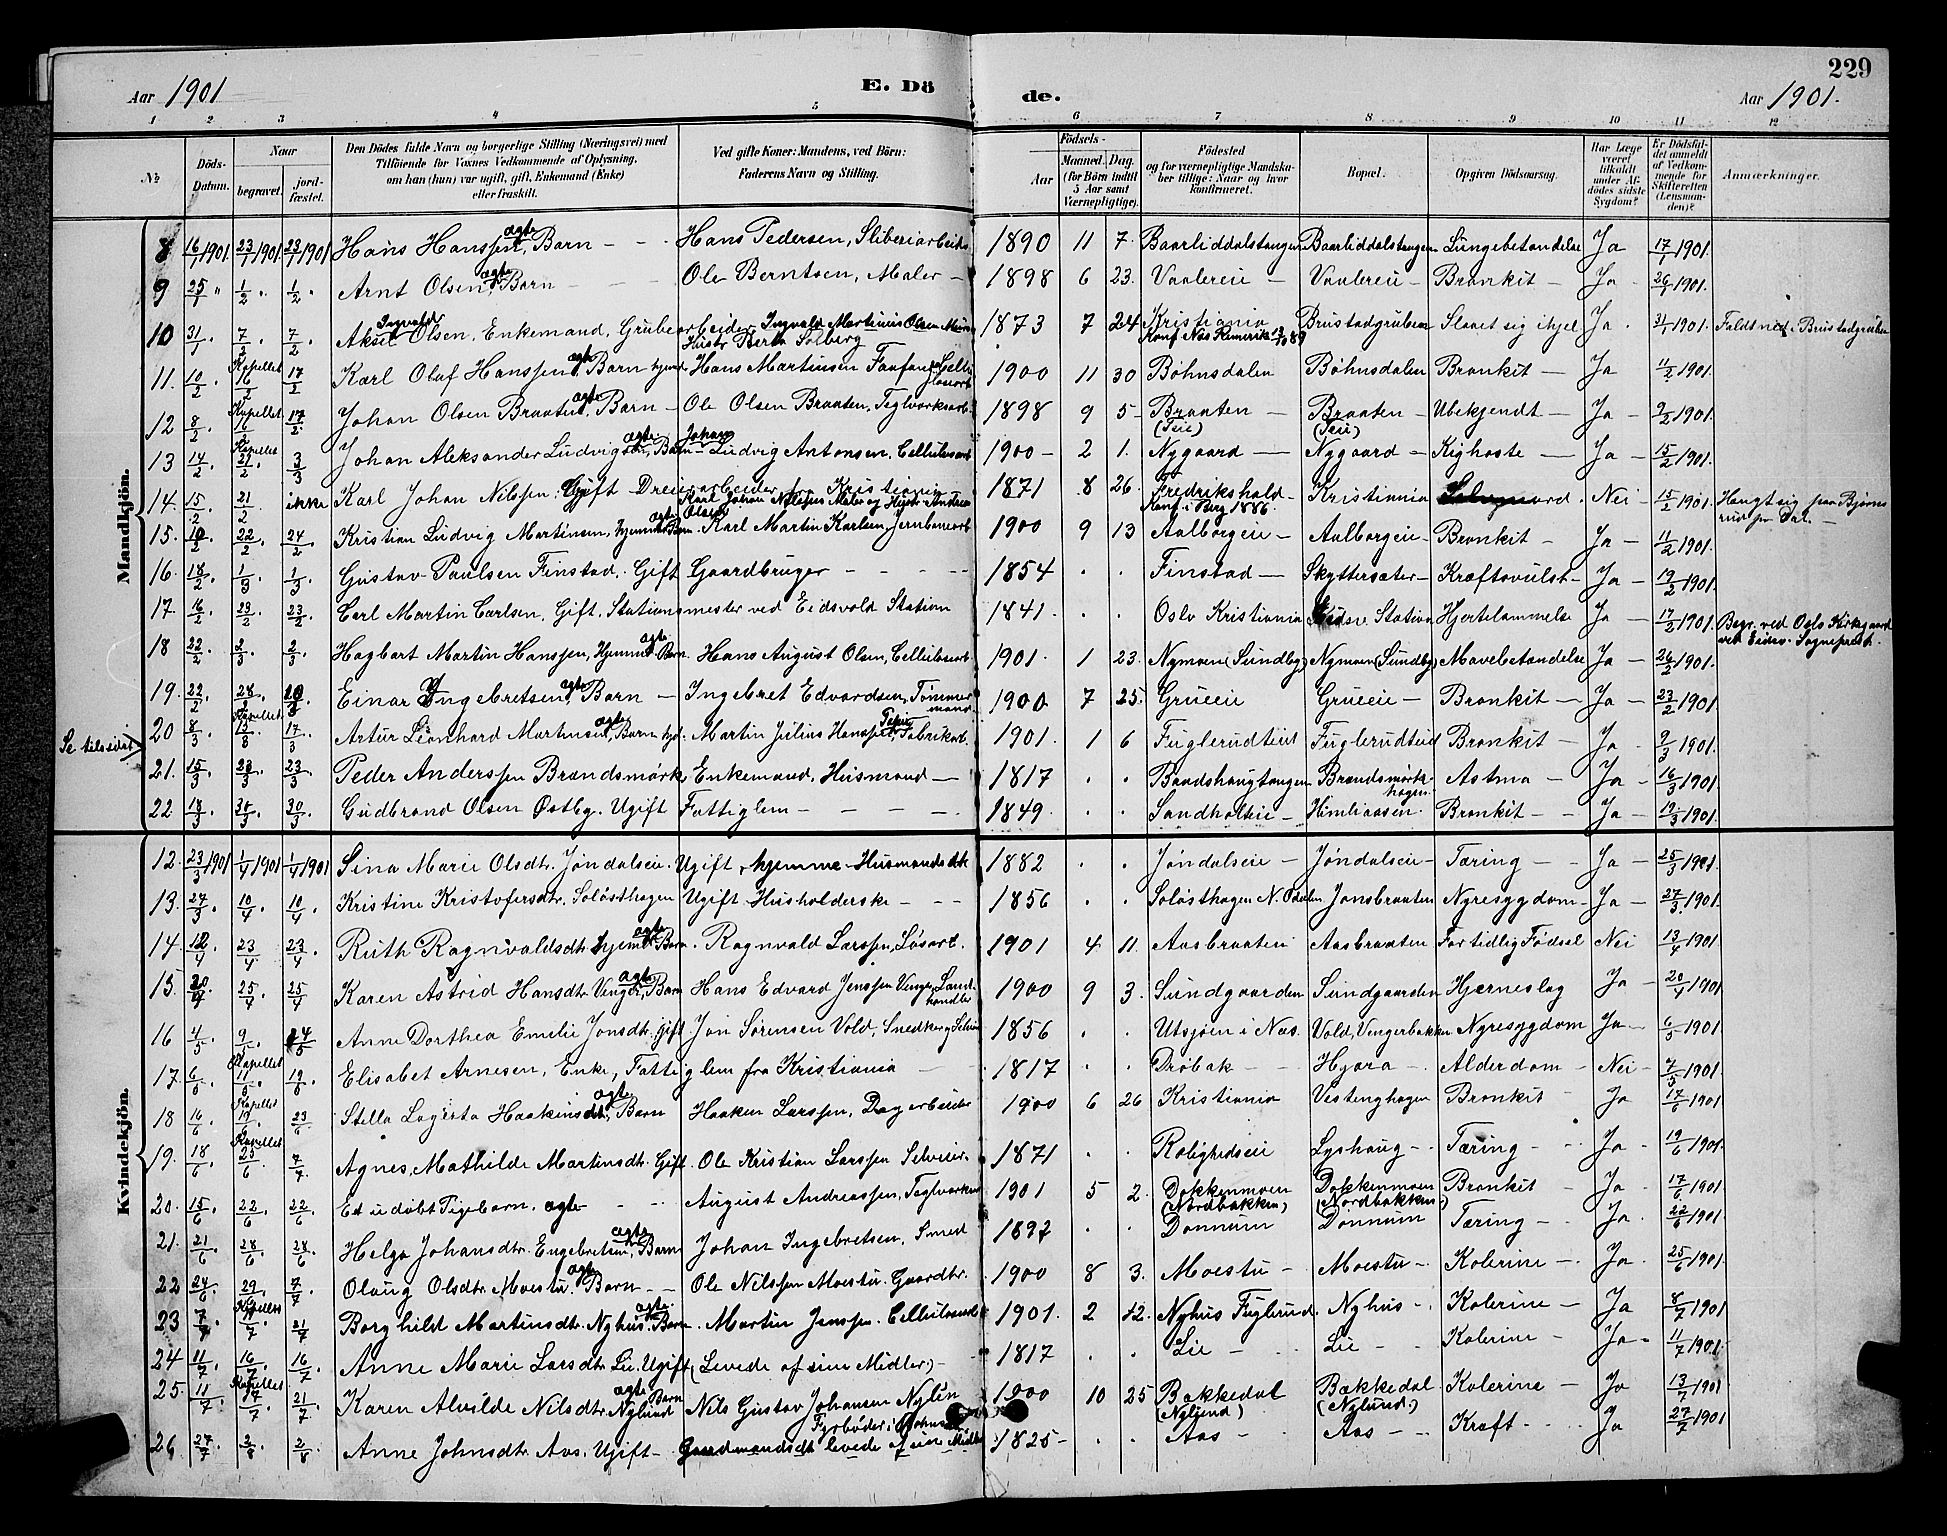 229
Aar 1901
E. Dö
de.
Aar 1901.
1 2 3 4 5 6 7 8 9 10 11 12
№
Döds-Datum.
Naar
begravet. jordfæstet.
Den Dödes fulde Navn og borgerlige Stilling (Næringsvei) med
Tilföiende for Voxnes Vedkommende af Oplysning,
om han (hun) var ugift, gift, Enkemand (Enke)
eller fraskilt.
Ved gifte Koner: Mandens, ved Börn:
Faderens Navn og Stilling.
Födsels-
Aar
Maaned. Dag.
(for Börn indtil
5 Aar samt
Værnepligtige).
Födested
og for værnepligtige Mandska-
ber tillige: Naar og hvor
konfirmeret.
Bopæl.
Opgiven Dödsaarsag.
Har Læge
været
tilkaldt
under Af-
dödes sidste
Sygdom?
Er Dödsfal-
det anmeldt
af Vedkom-
mende for
Skifteretten
(Lensman-
den)?
Anmærkninger.
Mandkjön.
8 16/1 1901 23/1 1901 23/1 1901 Hans Hanssen, ægte Barn - - Hans Pedersen, Sliberiarbeid. 1890 11 7. Baarliddalstangen Baarliddalstangen Lungebetændelse Ja 17/1 1901.
9 25/1 " 1/2 " 1/2 " Arnt Olsen, ægte Barn Ole Berntsen, Maler - 1898 6 23. Vaalereie - Vaalereie - Bronkit - Ja - 26/1 1901.
10 31/1 . 7/2 . 7/2 . Aksel Ingvald Olsen, Enkemand, Grubearbeider Ingvald Martinius Olsen Hustr Berta Solberg 1873 7 24 Kristiania Konf. Næs Romerike 89 Brustadgruben Slaaet sig ihjel Ja . 31/1 1901. Faldt ned i Brustadgruben
11. 10/2 . Kapellet 16/2 17/2 Karl Olaf Hanssen, ægte Barn hjemd. Hans Martinsen Cellulosearb. 1900 11 30 Böhnsdalen Böhnsdalen Bronkit - Ja 11/2 1901.
12 8/2 . Kapellet 17/2 . Johan Olsen Braaten, ægte Barn - Ole Olsen Braaten, Teglværksarb. 1898 9 5 - Braaten - (Seie) Braaten - (Seie) Ubekjendt - Ja - 9/2 1901.
13 14/2 . Kapellet 3/3 Johan Aleksander Ludvigsen, ægte Barn - Johan Ludvig Antonsen, Cellulosearb 1900 - 2 1. Nygaard - Nygaard - Kighoste - Ja - 15/2 1901.
14. 15/2 . 21/2 . ikke Karl Johan Nilssen, Gift Dreierarbeider fra Kristiania Karl Johan Nilssen Maler og Hustr. Andrea Olsen 1871 8 26. Fredrikshald - Konf i Berg 1886. Kristiania Selvmord. Nei - 15/2 1901. Hængt sig paa Björnsrud pr Dal. -
15. 10/2 . 22/2 . 24/2 . Kristian Ludvig Martinsen, hjemmed. ægte Barn . Karl Martin Karlsen, Jernbanearb 1900 9 13 Aalborgeie - Aalborgeie - Bronkit - Ja - 11/2 1901.
16. 18/2 . 1/3 . 1/3 . Gustav Paulsen Finstad, Gift Gaardbruger - - - 1854 . . Finstad - Skyttersæter - Kræftsvulst - Ja - 19/2 1901.
17. 16/2 . 23/2 . 23/2 . Carl Martin Carlsen, Gift, Stationsmester ved Eidsvold Station 1841. . . Oslo Kristiania Eidsv. Station Hjertelammelse Ja - 17/2 1901. Begr. ved Oslo Kirkegaard ved Eidsv. Sogneprest.
18 22/2 . 2/3 . 2/3 . Hagbart Martin Hanssen, hjemmed. ægte Barn . Hans August Olsen, Cellulosearb 1901. 1 23. Nymoen (Sundby) Nymoen (Sundby) Mavebetændelse Ja - 26/2 1901.
19. 22/2 . 28/2 . 10/3 . Einar Yngebretsen, ægte Barn - Ingebret Edvardsen, Tømmermand. 1900 7 25. Grueeie Grueeie - Bronkit - Ja - 23/2 1901.
Se tilsidst 20 8/3 . Kapellet 17/3 . Artur Leonhard Martinsen, ægte Barn hjd. Martin Julius Hanssen, Fabrikarb. 1901. 1 6 Fuglerudteiet Fuglerudteiet Bronkit - Ja . 9/3 1901.
21. 15/3 . 23/3 . 23/3 . Peder Anderssen Brandsmörk, Enkemand, Husmand - 1817 . . Brandshaugtangen Brandsmörkhagen. Astma - Ja - 16/3 1901.
22 18/3 . 30/3 . 30/3 . Gudbrand Olsen Østby, Ugift Fattiglem - - - 1849. . . Sandholteie - Himliaasen . Bronkit - Ja - 19/3 1901.
Kvindekjön.
12. 23/3 1901 1/4 1901 1/4 1901 Lina Marie Olsdtr. Jøndalseie . Ugift, hjemme - Husmandsdtr 1882 . . Jøndalseie - Jøndalseie - Tæring - - Ja - 25/3 1901.
13. 27/3 . 10/4 . 10/4 . Kristine Kristofersdtr. Soløsthagen Ugift Husholderske - - - 1856 . . Soløsthagen N. Odalen Jonsbraaten - Nyresygdom - Ja - 27/3 1901.
14. 12/4 . 23/4 . 23/4 . Ruth Ragnvaldsdtr, hjemd. ægte Barn . Ragnvald Larssen, Løsarb. 1901 4 11. Aasbraaten Aasbraaten For tidlig Födsel Nei 13/4 1901
15. 20/4 . 25/4 . 25/4 . Karen Astrid Hansdtr Venger, ægte Barn Hans Edvard Jenssen Venger, Landhandler 1900 9 3. Sundgaarden Sundgaarden Hjerneslag Ja - 20/4 1901
16 4/5 . 9/5 . 14/5 Anne Dorthea Emilie Jonsdtr. Gift Jon Sørensen Vold, Snedker, Selveier 1856 . . Utsjøen i Næs. Vold, Vengerbakken Nyresygdom Ja - 6/5 1901
17. 6/5 . Kapellet 19/5 . Elisabet Arnesen, Enke, Fattiglem fra Kristiania 1817 . . Drøbak - Hjæra - Alderdom - Nei - 7/5 1901
18 16/6 . Kapellet 19/6 . 23/6 Stella Lagerta Haakensdtr, ægte Barn Haaken Larssen, Dagarbeider 1900 6 26 Kristiania Vestenghagen Bronkit - Ja 17/6 1901
19. 18/6 . Kapellet 25/6 . 7/7 . Agnes Mathilde Martinsdtr. Gift. Ole Kristian Larssen Selveier. 1871 . . Rolighedseie Lyshaug - . Tæring - . Ja . 19/6 1901.
20. 15/6 . 22/6 . 22/6 . Et udøbt Pigebarn, ægte - - August Andreassen, Teglværksarb 1901 5 2. Dokkenmoen (Nordbakken) Dokkenmoen (Nordbakken) Bronkit - Ja . 17/6 1901
21. 21/6 . 28/6 . 28/6 . Helga Johansdtr. Engebretsen, ægte Barn Johan Ingebretsen, Smed 1892 . . Donnum Donnum Tæring - . Ja . 22/6 1901.
22 24/6 . 29/6 . 7/7 . Olaug Olsdtr. Moestu. ægte Barn - - Ole Nilssen Moestu. Gaardbr. 1900 8 3. Moestu - Moestu - . Kolerine - . Ja . 25/6 1901
23 7/7 . Kapellet 21/7 Borghild Martinsdtr. Nyhus, ægte Barn . Martin Jenssen. Cellulosearb 1901. 2 12. Nyhus Fuglerud Nyhus - . Kolerine - Ja 8/7 1901
24 11/7 . 16/7 . 16/7 . Anne Marie Larsdtr. Lie. Ugift (Levede af sine Midler) - 1817 . . Lie - Lie - . Kolerine - Ja - 11/7 1901.
25. 11/7 . Kapellet 17/7 . 21/7 . Karen Alvilde Nilsdtr. Nylund ægte Barn Nils Gustav Johansen Nylén Fyrbøder i Bøhnsd. 1900 10 25 Bækkedal (Nylund) Bækkedal (Nylund.) Kolerine - Ja 13/7 1901
26. 27/7 . 2/8 . 2/8 . Anne Johnsdtr. Aas. Ugift - Gaardmandsdt. levede af sine Midler 1825 - . . Aas - Aas - - Kræft - . . Ja 27/7 1901